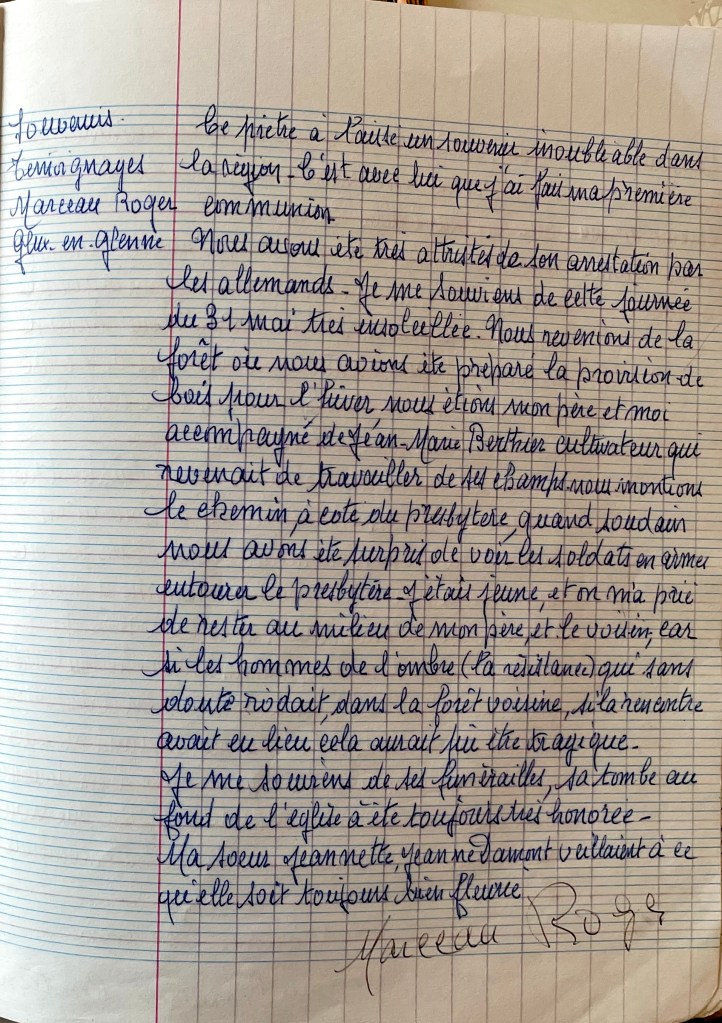 Souvenirs.
Temoignages
Marceau Roger
Glux-en-Glenne
Ce prêtre à laissé un souvenir inoubliable dans
la région - C'est avec lui que j'ai fait ma première
communion
Nous avons été très attristés de son arrestation par
les allemands - Je me souviens de cette journée
du 31 mai très ensoleillée. Nous revenions de la
forêt où nous avions été préparé la provision de
bois pour l'hiver nous étions mon père et moi
accompagné de Jean-Marie Berthier cultivateur qui
revenait de travailler de ses champs. nous montions
le chemin, à coté du presbytère, quand soudain
nous avons été surpris de voir les soldats en armes
entourer le presbytère - j'étais jeune, et on m'a prié
de rester au milieu de mon père, et le voisin, car
si les hommes de l'ombre (la résistance) qui sans
doute rodait, dans la forêt voisine, si la rencontre
avait eu lieu cela aurait pu être tragique -
Je me souviens de ses funérailles, sa tombe au
fond de l'église à été toujours très honorée -
Ma soeur Jeannette, Jeanne Damont veillaient à ce
qu'elle soit toujours bien fleurie
Marceau Roger